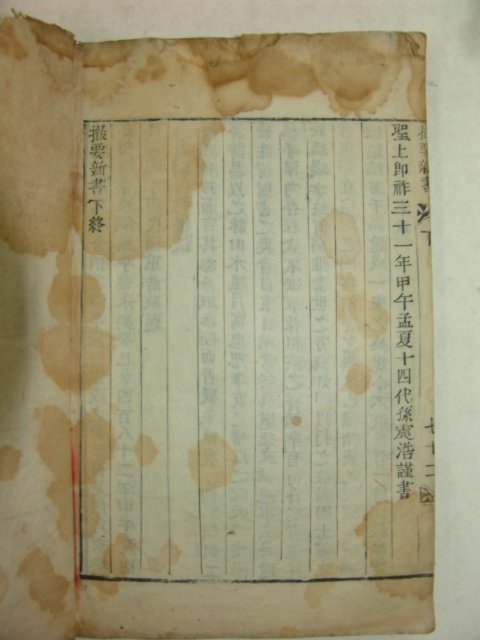 撮要新書 下
七十二
聖上卽祚三十一年甲午孟夏十四代孫震浩謹書
撮要新書下終